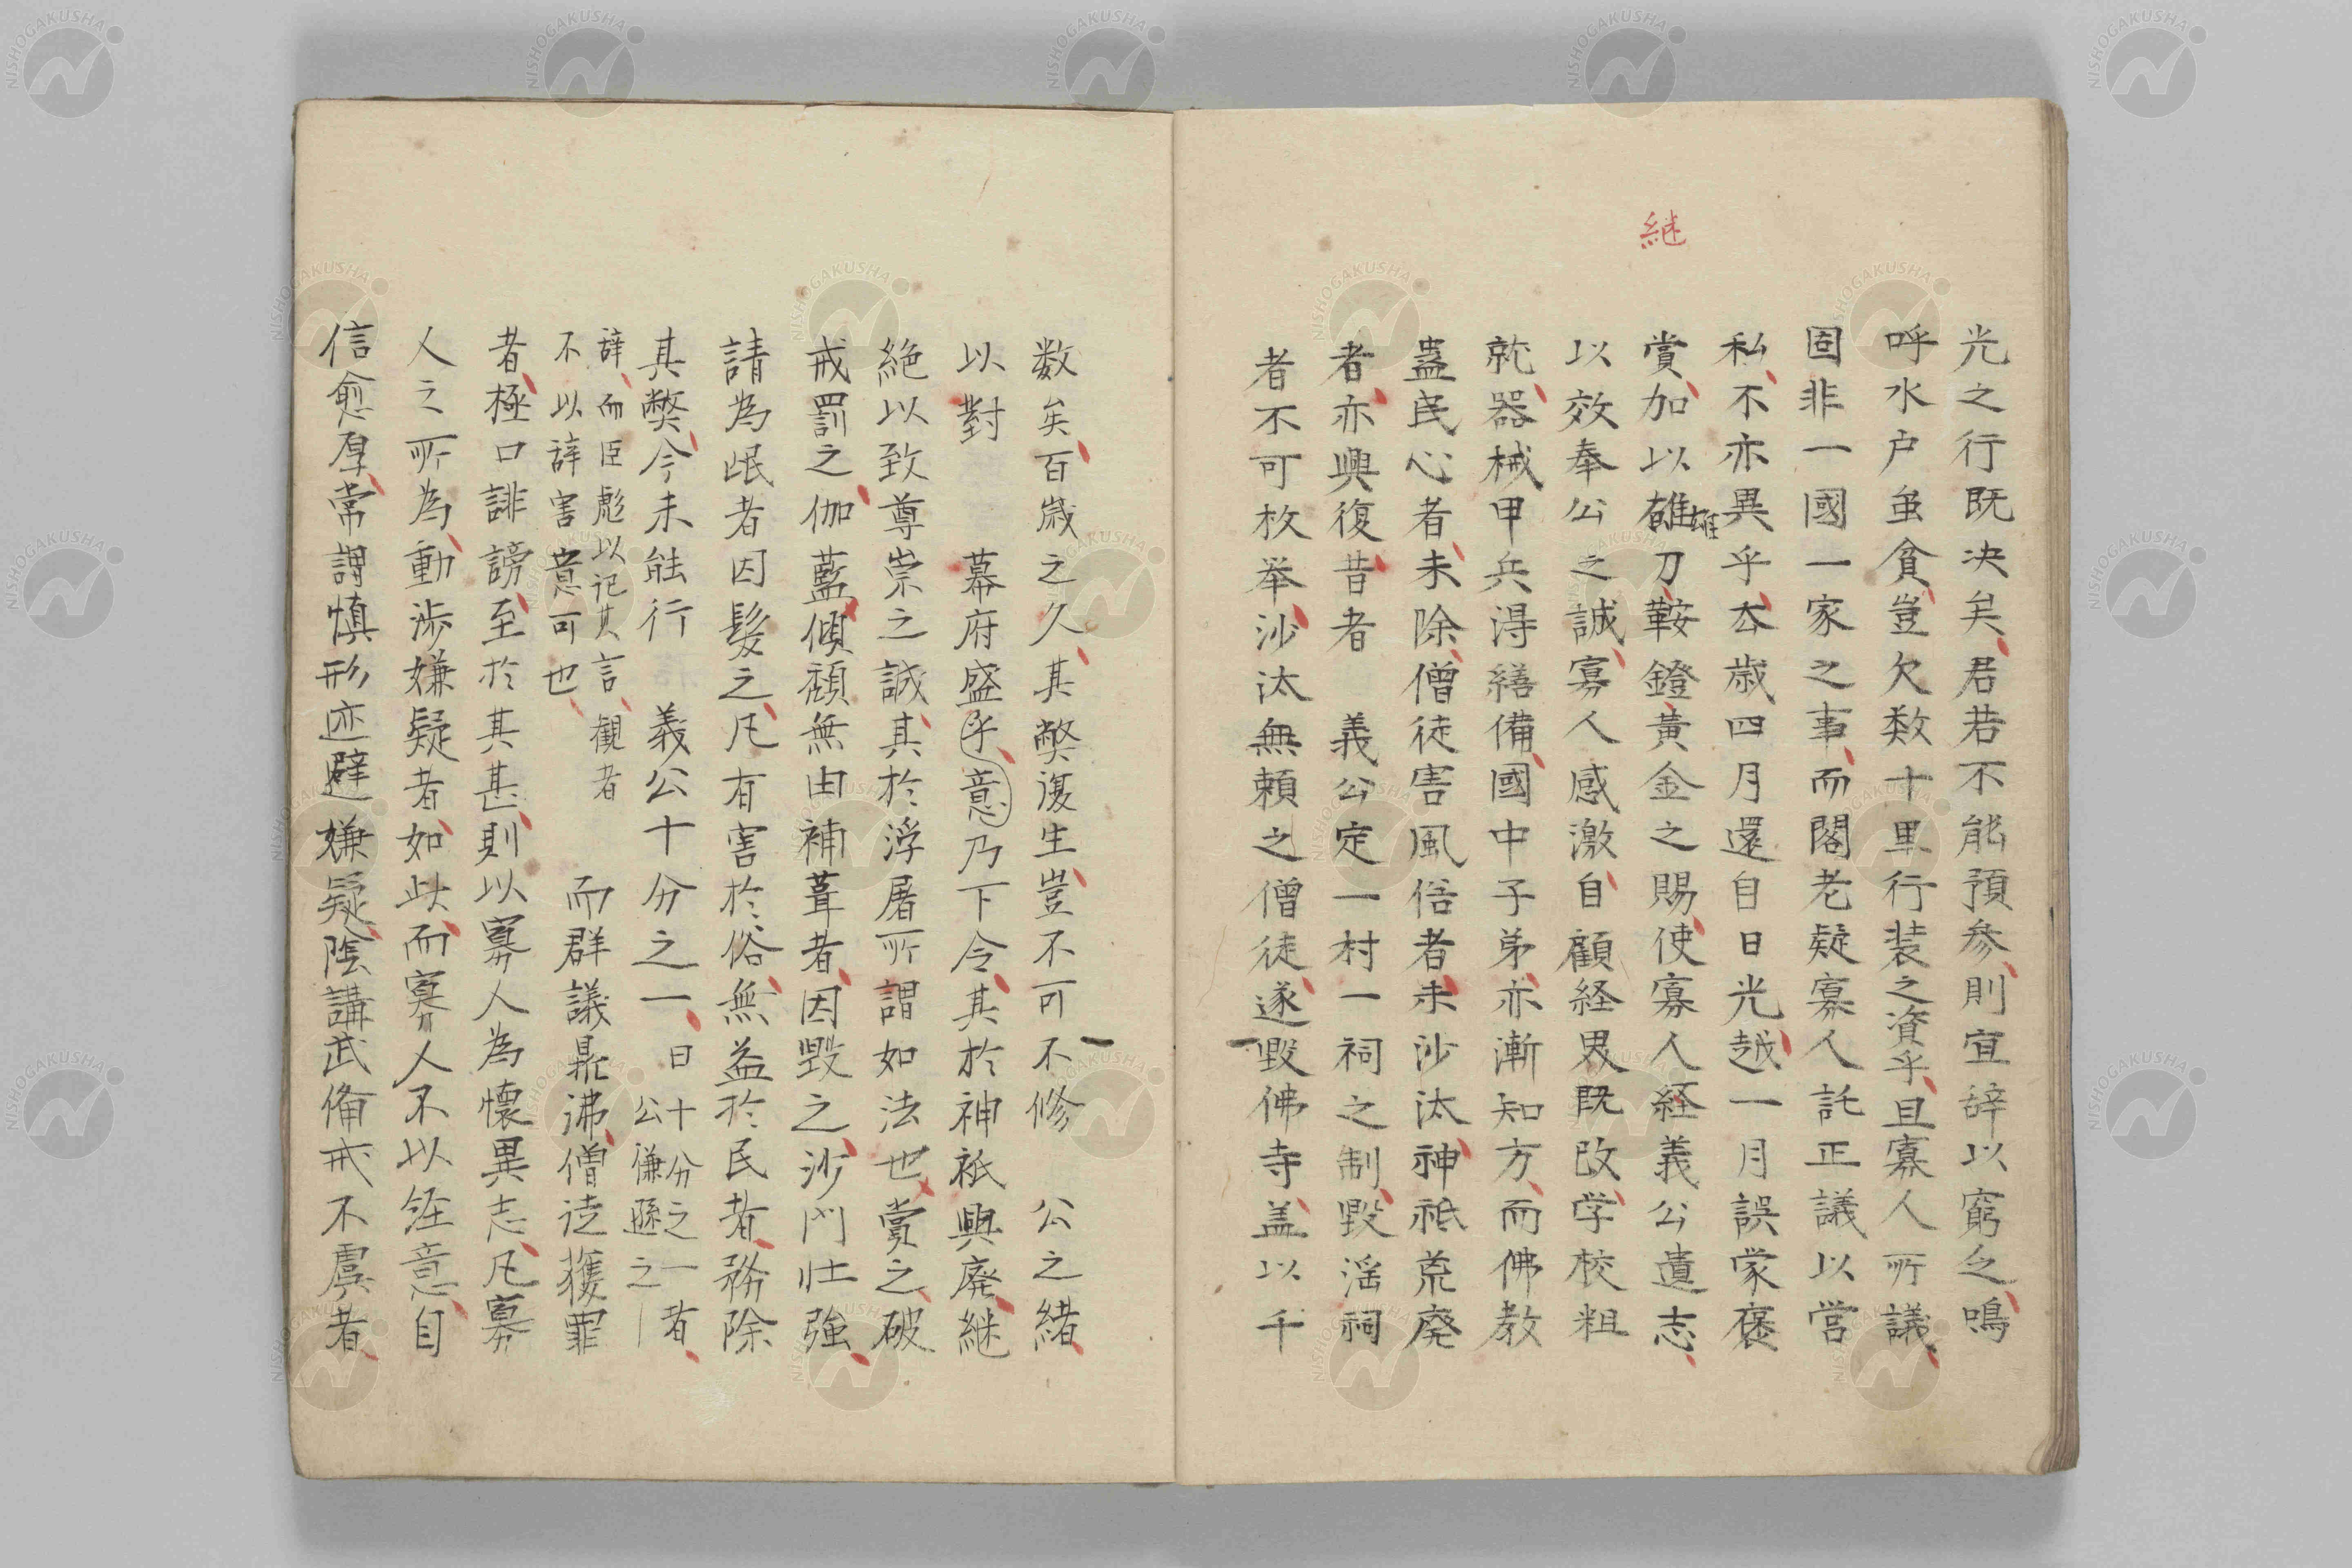 継
光之行既决矣君若不能預參則宜辞以窮乏鳴
呼水户虽貧豈欠数十里行装之資乎且寡人所議
固非一國一家之事而閣老疑寡人託正議以営
私不亦異乎本歳四月還自日光越一月誤蒙褒
賞加以雄刀鞍鐙黄金之賜使寡人経義公遺志
雄
以效奉公之誠寡人感激自顧経界既改学校粗
就器械甲兵得繕備國中子弟亦漸知方而佛教
蠱民心者未除僧徒害風俗者未沙汰神祇荒廃
者亦興復昔者　義公定一村一祠之制毀淫祠
者不可枚挙沙汰無頼之僧徒遂毀佛寺盖以千
数矣百歳之久其弊復生豈不可不修　公之緒
以對　幕府盛乎意乃下令其於神祇興廃継
絶以致尊崇之誠其於浮屠所謂如法也賞之破
戒罰之伽藍傾頽無由補葺者因毀之沙門壮強
請為氓者因髪之凡有害於俗無益於民者務除
其弊今未能行　義公十分之一日十分之一者
公謙遜之
辞而臣彪以记其言観者
不以辞害意可也
而群議鼎沸僧徒獲罪
者極口誹謗至於其甚則以寡人為懷異志凡寡
人之所為動渉嫌疑者如此而寡人不以経意自
信愈厚常謂慎形迹避嫌疑陰講武備戒不虞者